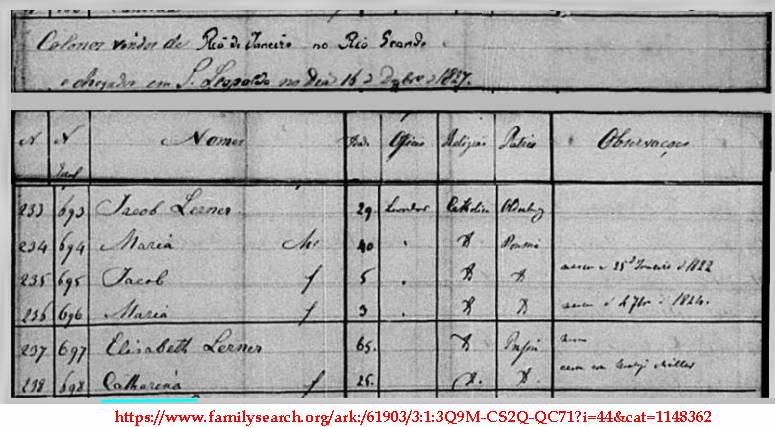 Colonos vindos do Rio de Janeiro no Rio Grande
e chegados em S. Leopoldo no dia 16 d Dzbre d 1827.
N N Nomes Idade Oficio Religião Patria Observações
Geral
233 693 Jacob Lerner 29. Lavrador Catholica Oldenburg
234 694 Maria Mr 40
235 695 Jacob f 5 nasceu a 25 d Janeiro d 1822
236 696 Maria f 3 nasceu d 4 7bro d 1824.
237 697 Elisabeth Lerner 65.
238 698 Catharina f 25.
https://www.familysearch.org/ark:/61903/3:1:3Q9M-CS2Q-QC71?i=44&cat=1148362